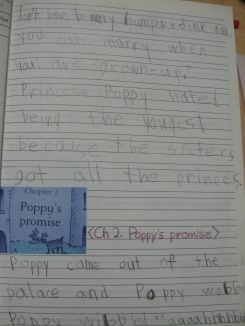 don't have to marry humperdink
you can marry when
you are grown-up.
Princess Poppy hated
being the yougest
because the sisters
got all the princes.
Chapter 2
Poppy's
promise
<Ch 2. Poppy's promise>
Poppy came out of the
palace and Poppy wobbl
Poppy wibbled "aaaahhhhh